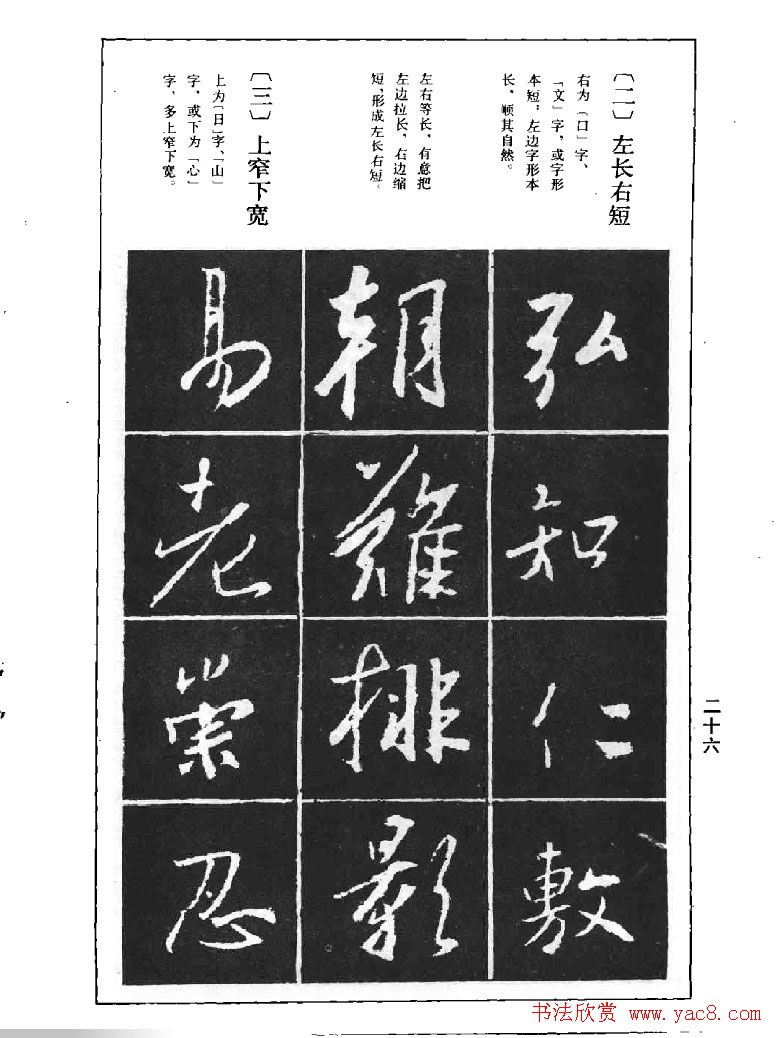 〔二〕左长右短
右为〔口〕字、
「文」字，或字形
本短；左边字形本
长，顺其自然。
左右等长，有意把
左边拉长，右边缩
短，形成左长右短。
〔三〕上窄下宽
上为〔日〕字、「山」
字，或下为「心」
字，多上窄下宽。
弘知仁敷
朝難排影
易老崇忍
二十六
书法欣赏 www.yac8.com